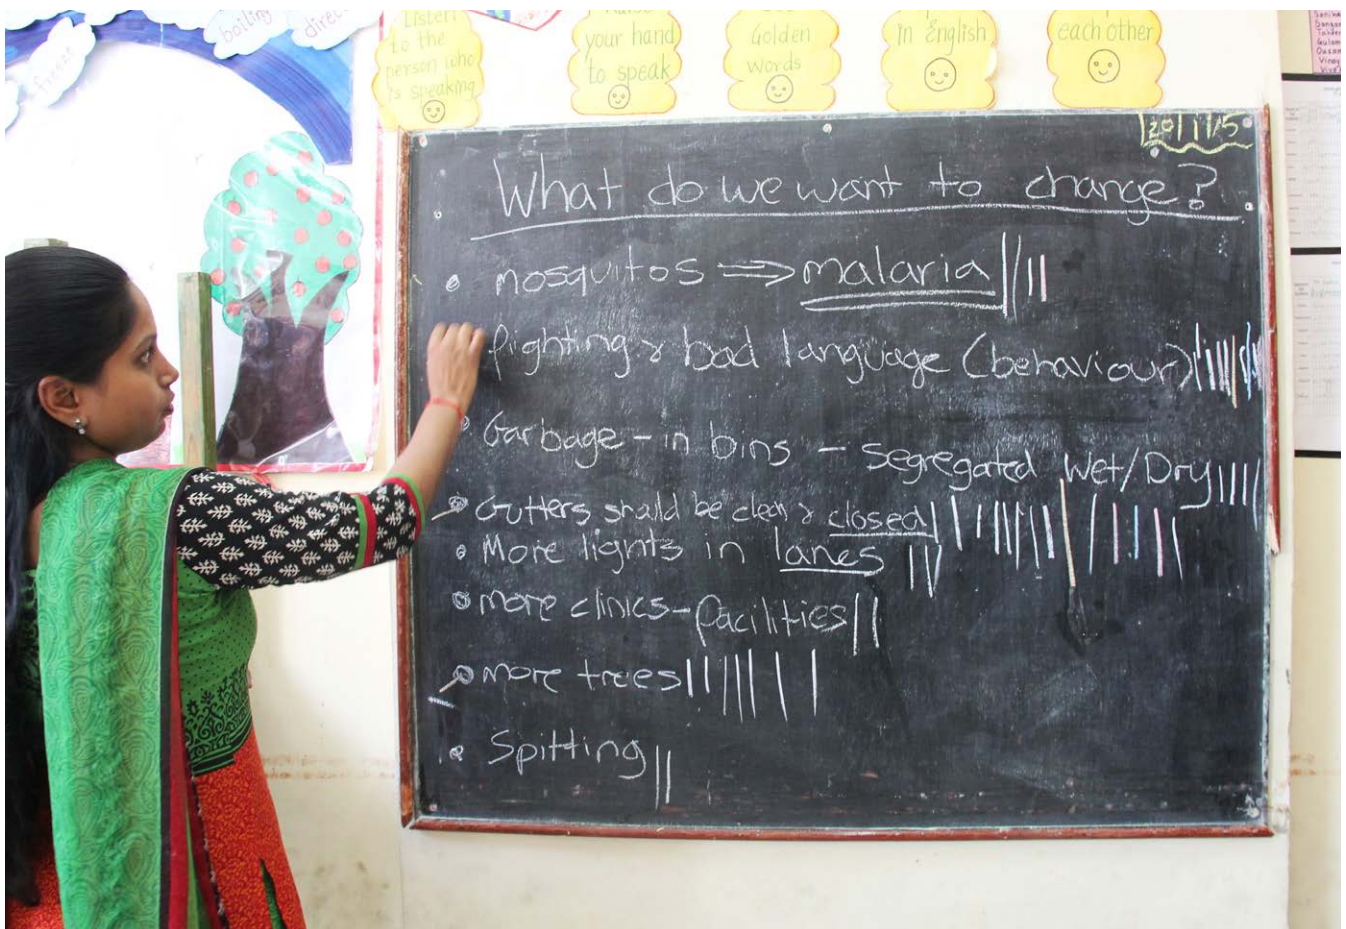 boiling
direc
freeze
Listen
to the
person who
is speaking
your hand
to speak
Golden
words
in English
each other
20/11/15
What do we want to change?
mosquitos ⇒ malaria
fighting & bad language (behaviour)
Garbage – in bins – segregated Wet/Dry
Gutters should be clean & closed
More lights in lanes
more clinics – facilities
more trees
Spitting